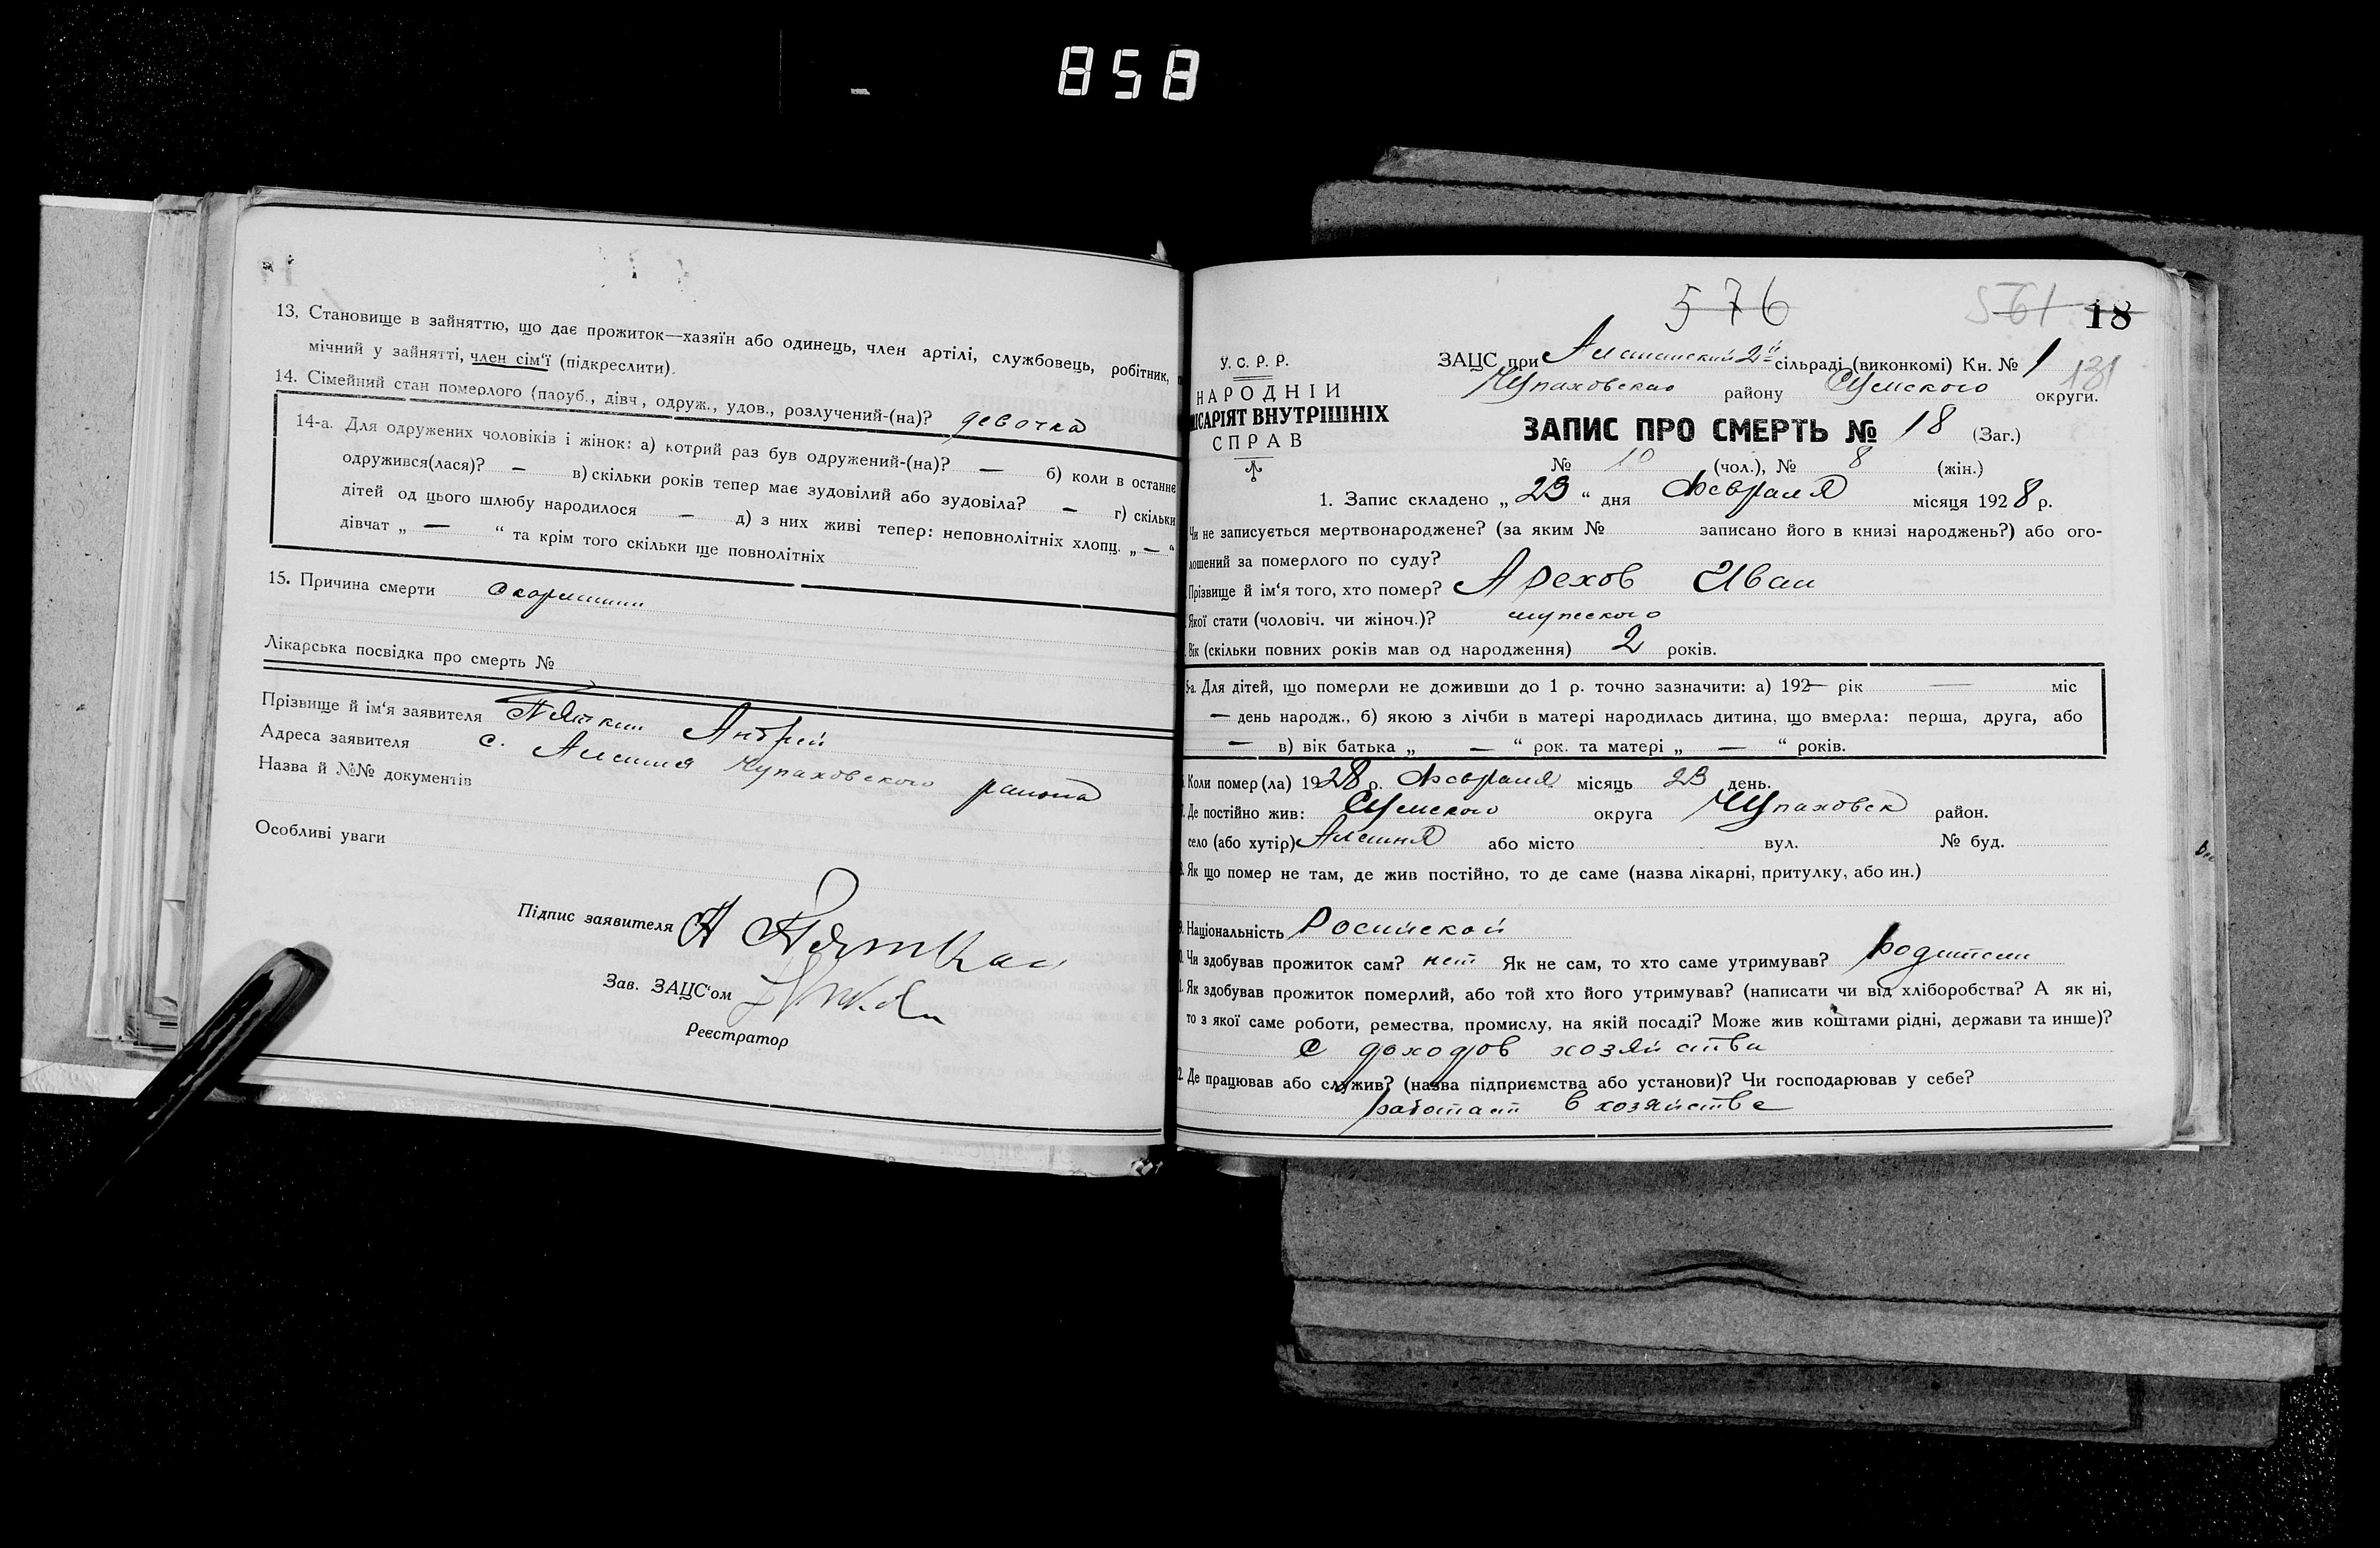 858
13. Становище в зайняттю, що дає прожиток—хазяїн або одинець, член артілі, службовець, робітник,
мічний у зайнятті, член сім'ї (підкреслити).
14. Сімейний стан померлого (паруб., дівч., одруж., удов., розлучений-(на)? девочка
14-а. Для одружених чоловіків і жінок: а) котрий раз був одружений-(на)? — б) коли в останнє
одружився(лася)? — в) скільки років тепер має зудовілий або зудовіла? — г) скільки
дітей од цього шлюбу народилося — д) з них живі тепер: неповнолітніх хлопц. „ — “
дівчат „ — “ та крім того скільки ще повнолітніх
15. Причина смерти
Лікарська посвідка про смерть №
Прізвище й ім'я заявителя Пяткин Андрей
Адреса заявителя с. Алешня Чупаховского района
Назва й №№ документів
Особливі уваги
Підпис заявителя А Пяткин
Зав. ЗАЦС'ом
Реєстратор
576
561 18
131
У.С.Р.Р.
НАРОДНІЙ
ІСАРІЯТ ВНУТРІШНІХ
СПРАВ
ЗАЦС при Алешанский 2й сільраді (виконкомі) Кн. № 1
Чупаховскаго району Сумского округи.
ЗАПИС ПРО СМЕРТЬ № 18 (Заг.)
№ 10 (чол.), № 8 (жін.)
1. Запис складено „ 23 “ дня Февраля місяця 1928 р.
Чи не записується мертвонароджене? (за яким № записано його в книзі народжень?) або ого-
лошений за померлого по суду?
Прізвище й ім'я того, хто помер? Арехов Иван
Якої стати (чоловіч. чи жіноч.)? мужского
Вік (скільки повних років мав од народження) 2 років.
5-а. Для дітей, що померли не доживши до 1 р. точно зазначити: а) 192— рік — міс
— день народж., б) якою з лічби в матері народилась дитина, що вмерла: перша, друга, або
— в) вік батька „ — “ рок. та матері „ — “ років.
Коли помер (ла) 1928 р. Февраля місяць 23 день.
Де постійно жив: Сумского округа Чупаховск район.
село (або хутір) Алешня або місто вул. № буд.
Як що помер не там, де жив постійно, то де саме (назва лікарні, притулку, або ин.)
9. Національність Росийской
Чи здобував прожиток сам? нет Як не сам, то хто саме утримував? родители
Як здобував прожиток померлий, або той хто його утримував? (написати чи від хліборобства? А як ні,
то з якої саме роботи, ремества, промислу, на якій посаді? Може жив коштами рідні, держави та инше)?
С доходов хозяйства
Де працював або служив? (назва підприємства або установи)? Чи господарював у себе?
работает в хозяйстве